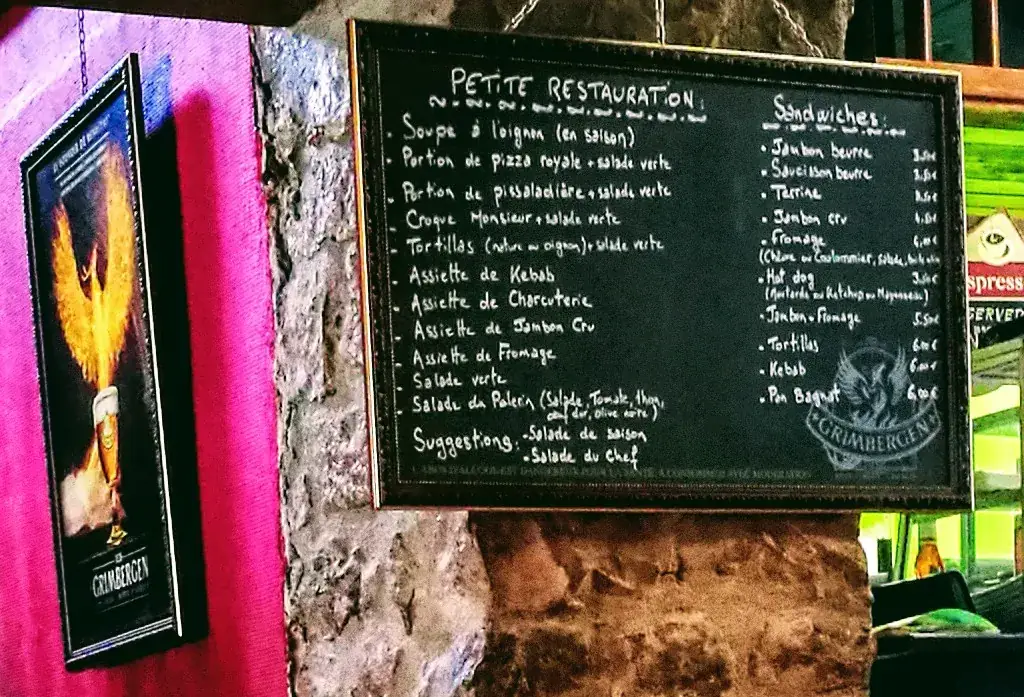 PETITE RESTAURATION:
- Soupe à l'oignon (en saison)
- Portion de pizza royale + salade verte
- Portion de pissaladière + salade verte
- Croque Monsieur + salade verte
- Tortillas (nature ou oignon) + salade verte
- Assiette de Kebab
- Assiette de Charcuterie
- Assiette de Jambon Cru
- Assiette de Fromage
- Salade verte
- Salade du Pelerin (Salade, Tomate, thon,
oeuf dur, olive noire)
Suggestions: - Salade de saison
- Salade du Chef
L'ABUS D'ALCOOL EST DANGEREUX POUR LA SANTÉ. A CONSOMMER AVEC MODÉRATION
Sandwiches:
• Jambon beurre
• Saucisson beurre
• Terrine
• Jambon cru
• Fromage
(Chèvre ou Coulommier, salade,
• Hot dog
(Moutarde ou Ketchup ou Mayonnaise)
• Jambon + Fromage 5.50€
• Tortillas 6.00€
• Kebab 6.00€
• Pan Bagnat 6.00€
GRIMBERGEN
GRIMBERGEN
spress
SERVED